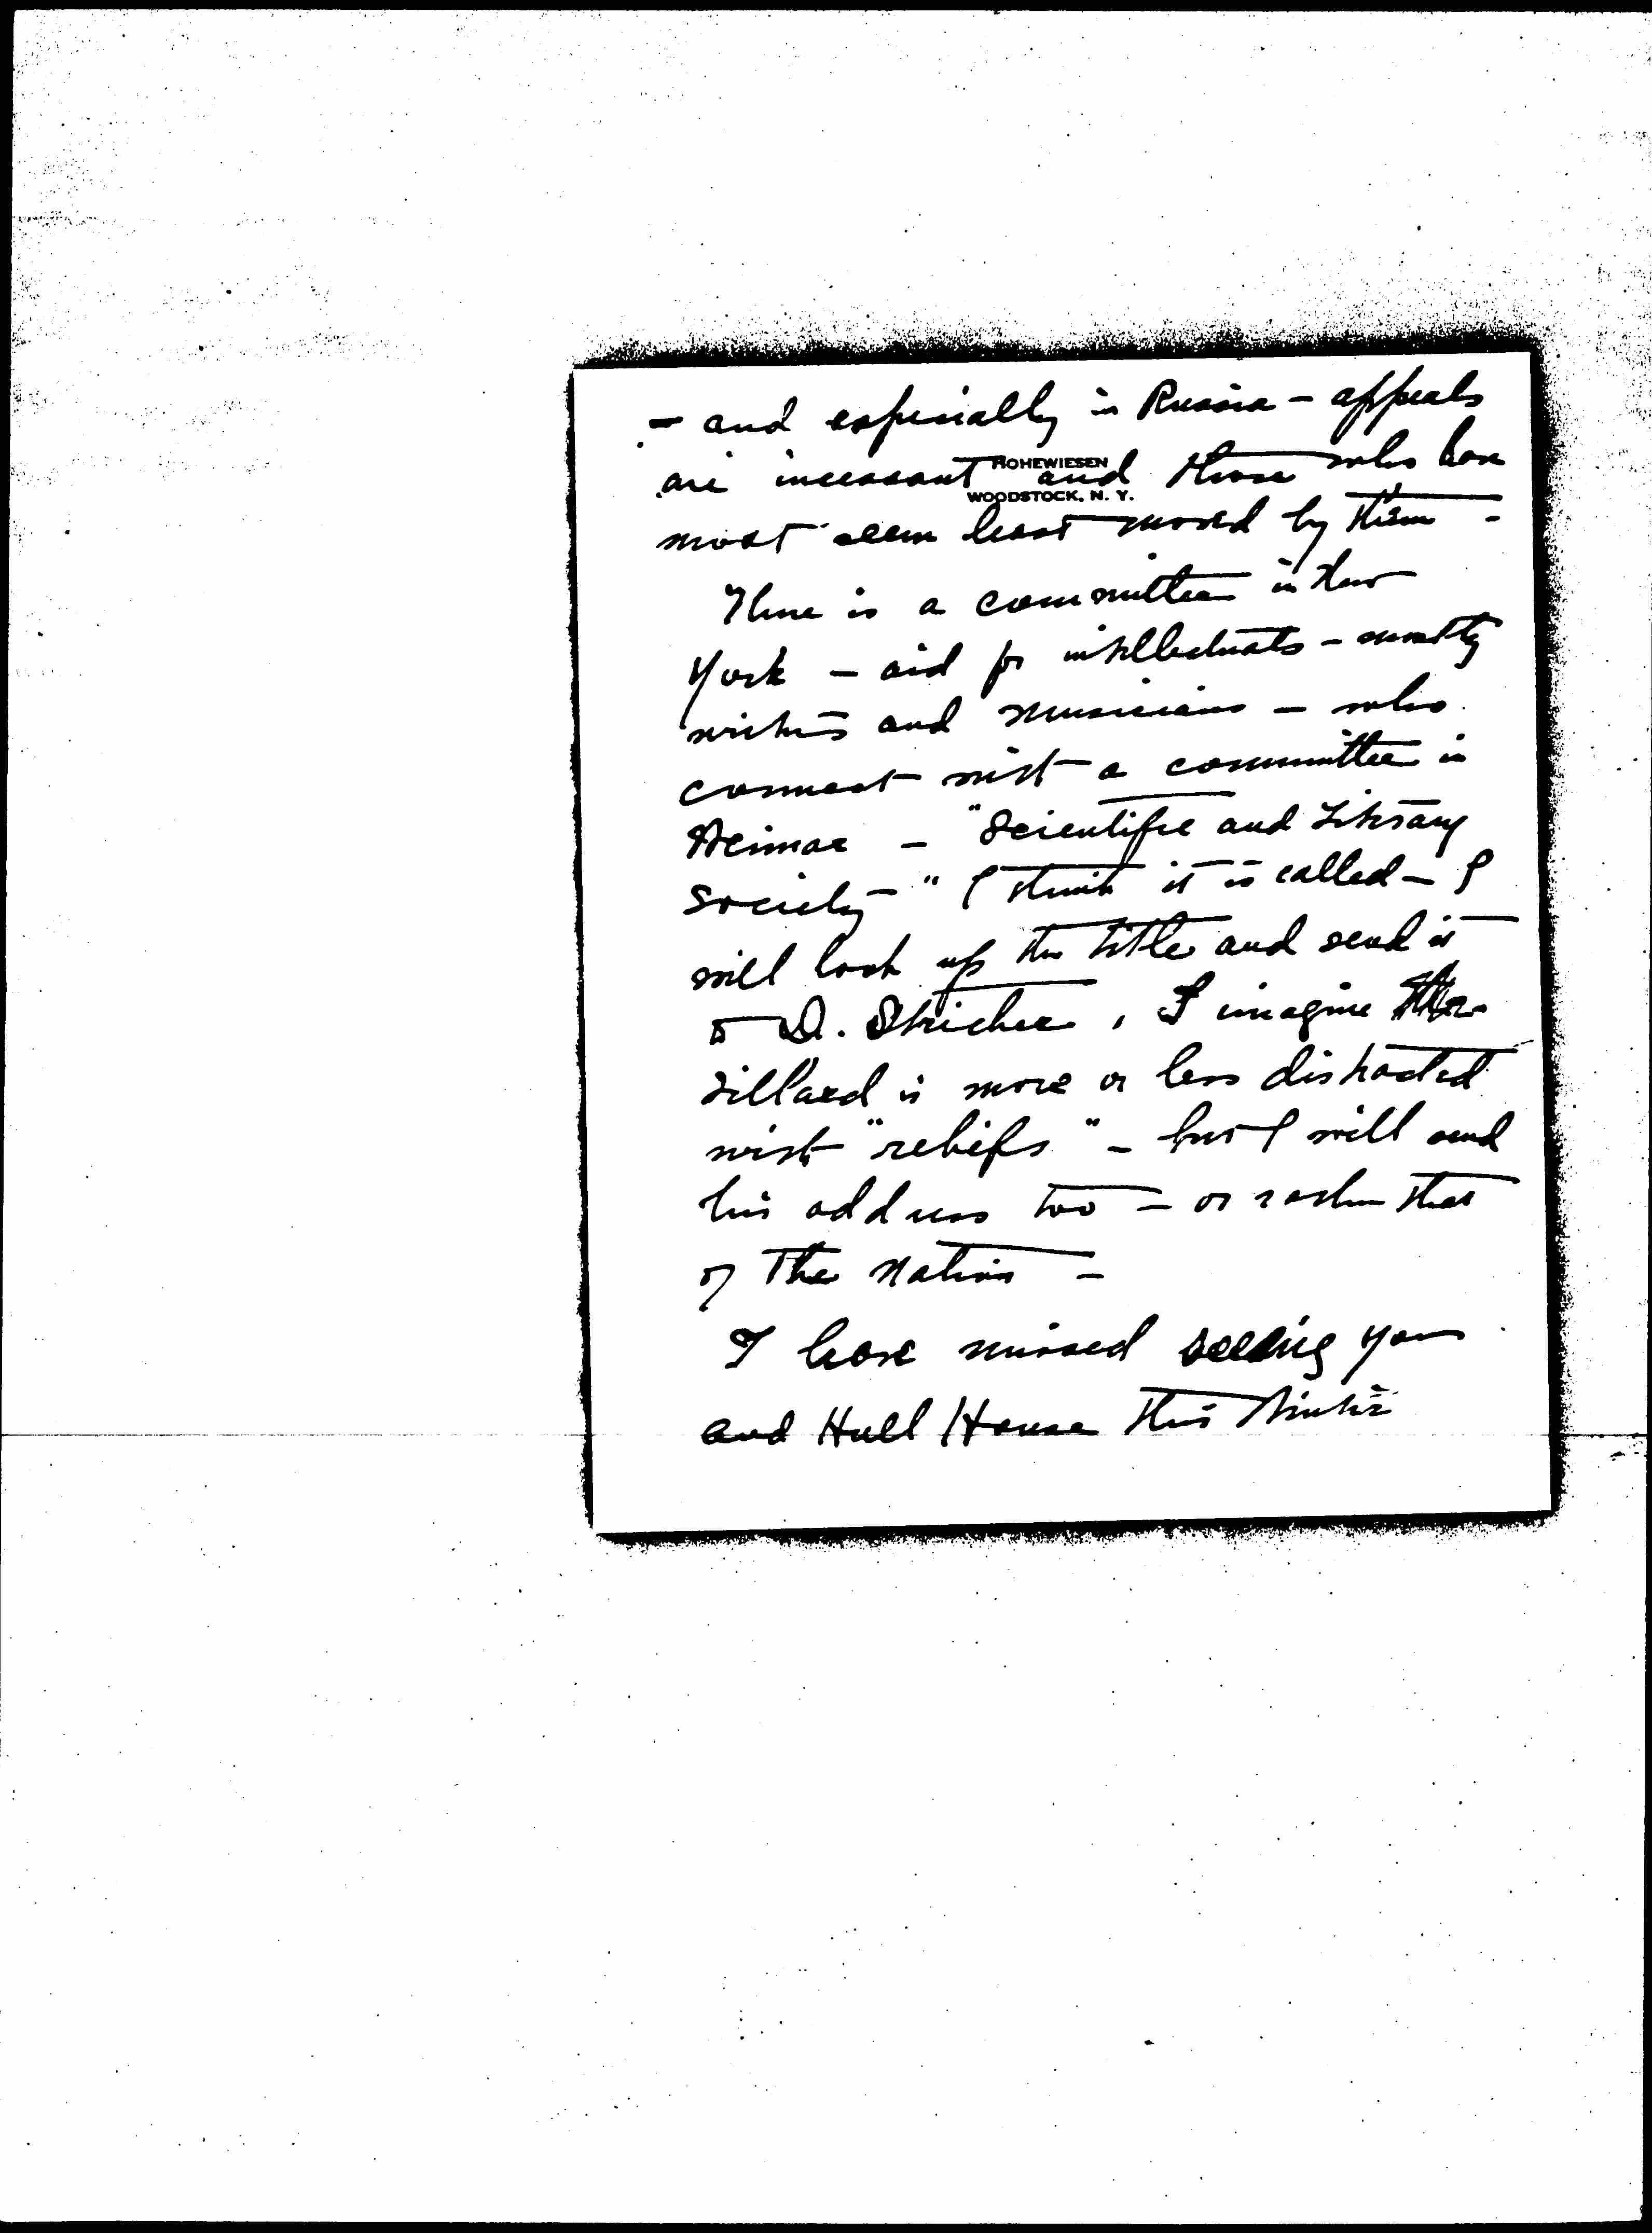 - and especially in Russia - appeals
HOHEWIESEN
WOODSTOCK, N. Y.
are incessant and those who have
most seem least moved by them -
There is a committee in New
York - aid for intellectuals - mostly
writers and musicians - who
connect with a committee in
Weimar - "Scientific and Literary
Society -" I think it is called - I
will look up the title and send it
to D. Stricker, I imagine
Villard is more or less distracted
with "reliefs" - but I will send
his address too - or rather that
of The Nation -
I have missed seeing you
and Hull House this Winter